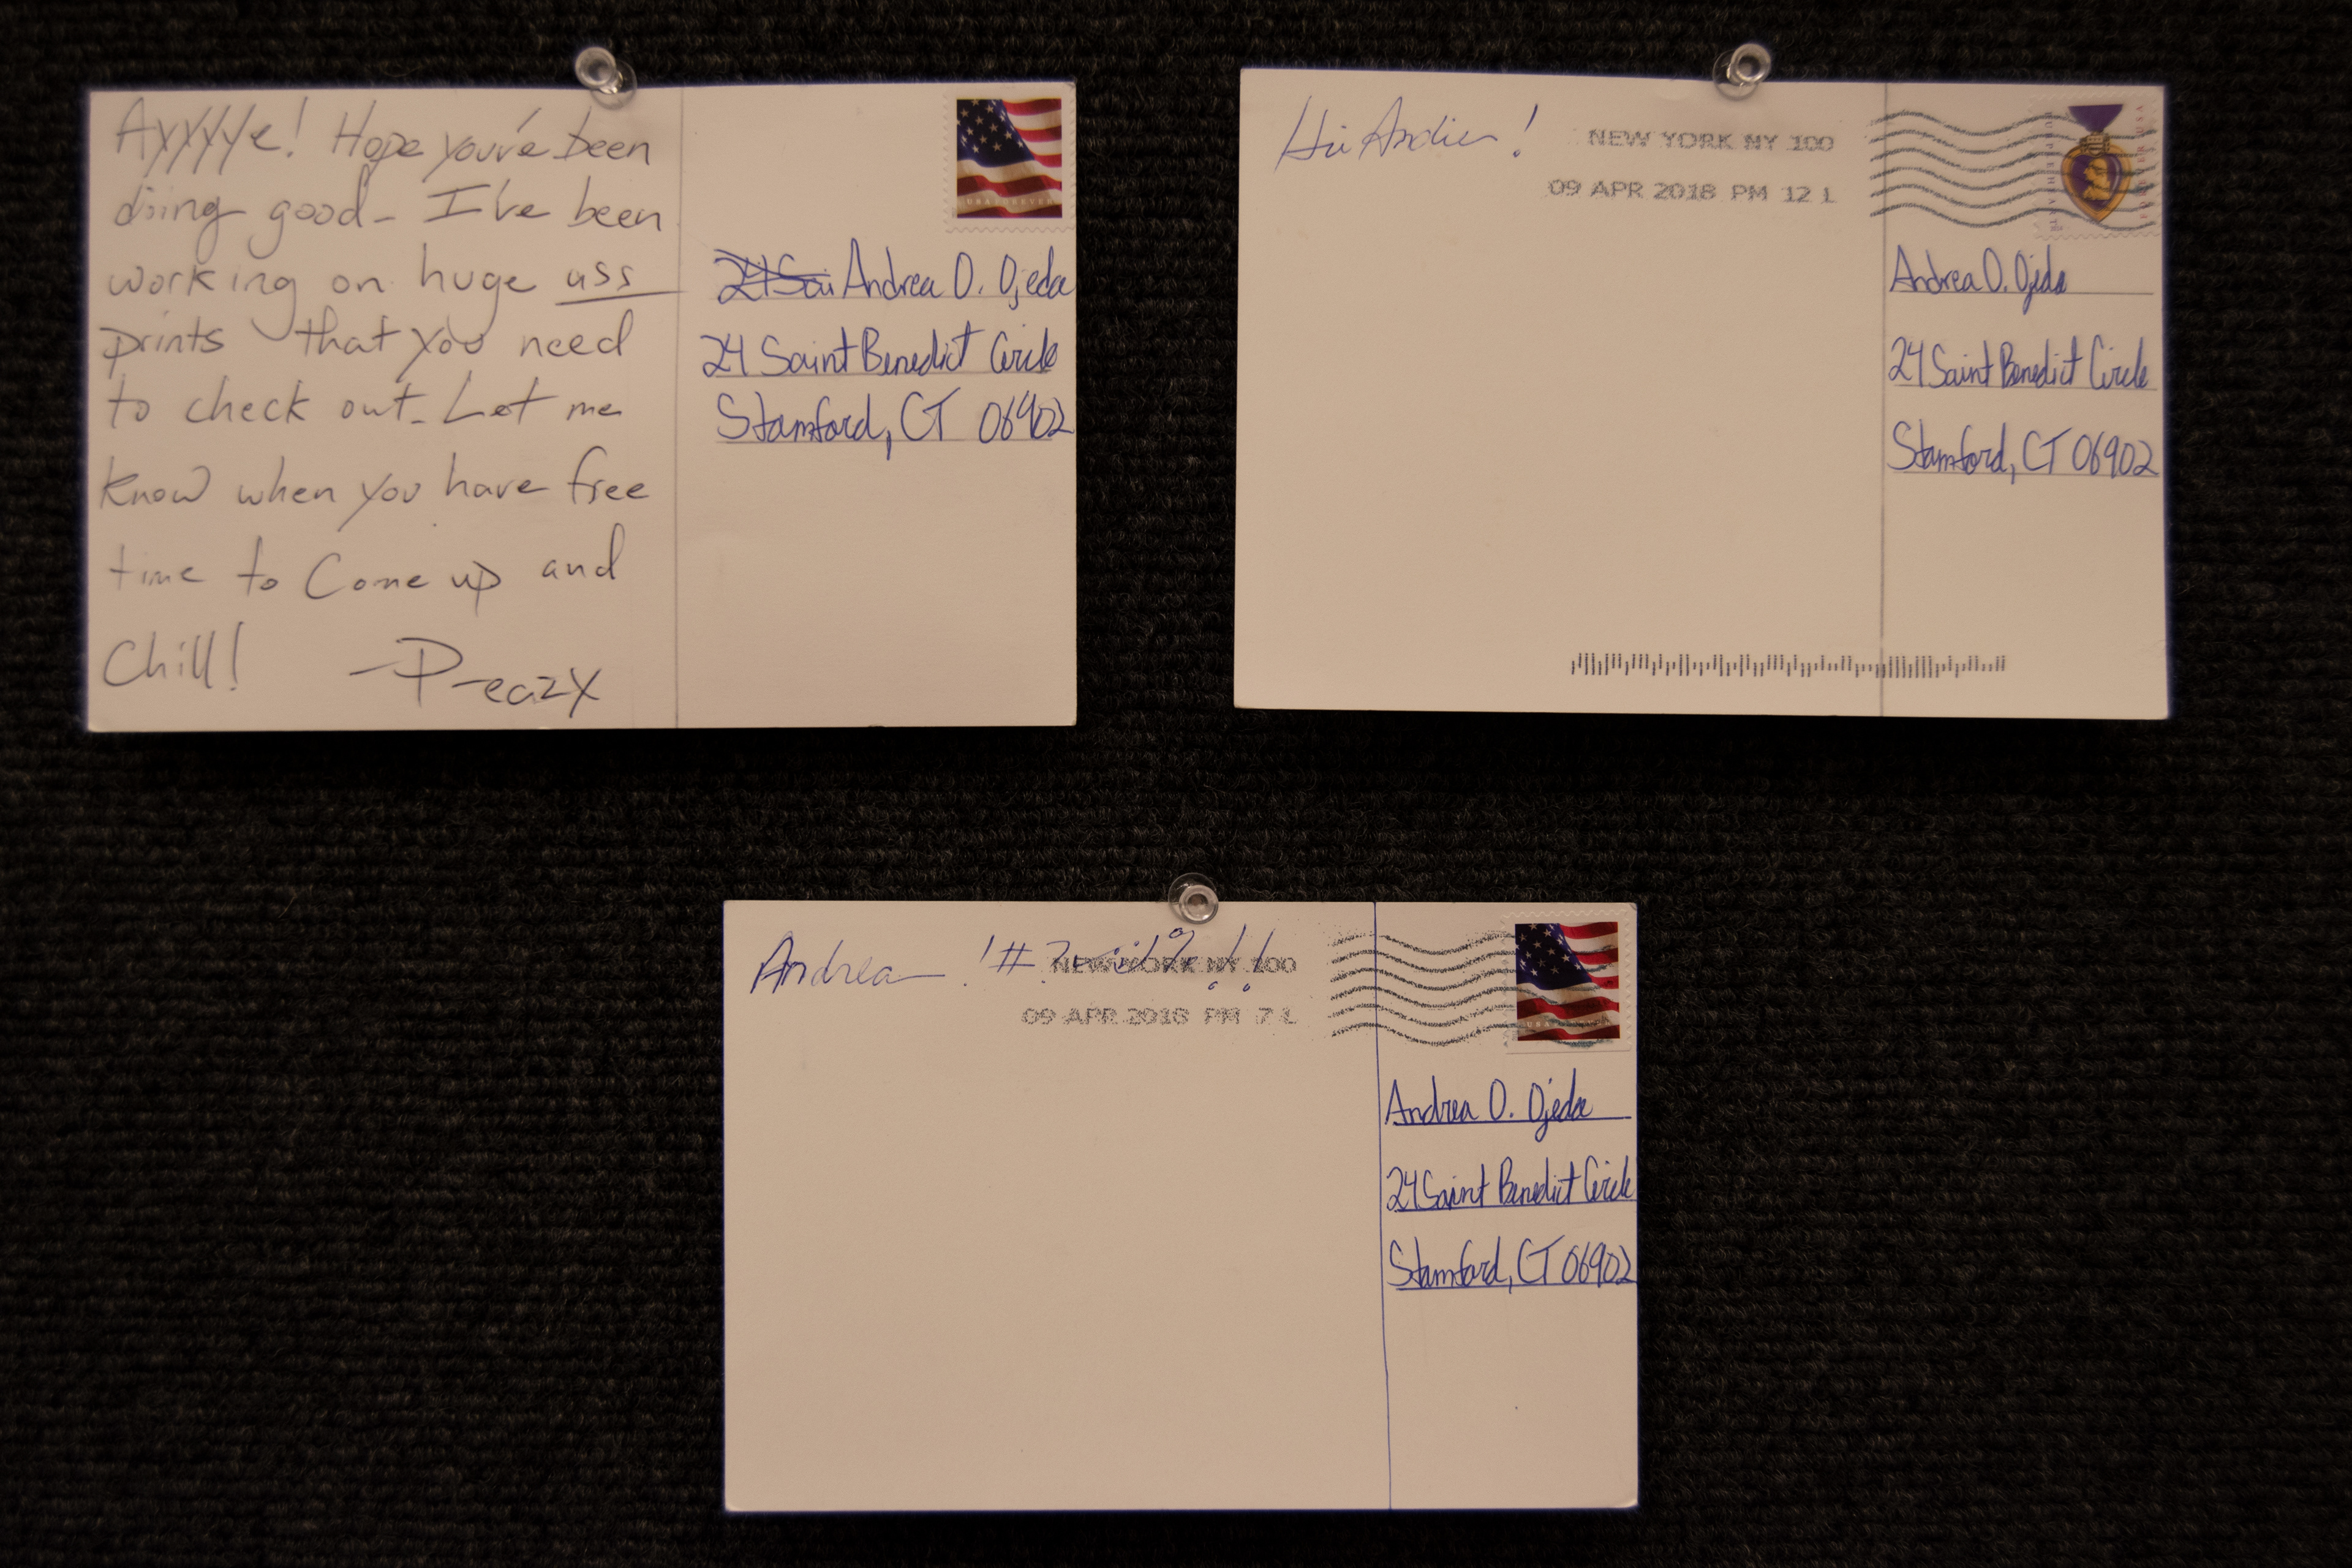 Ayyyye! Hope you've been
doing good- I've been
working on huge ass
prints that you need
to check out. Let me
know when you have free
time to Come up and
Chill! -D-eazy
USA FOREVER
24 Sai Andrea O. Ojeda
24 Saint Benedict Circle
Stamford, CT 06902
Hi Andie!
NEW YORK NY 100
09 APR 2018 PM 12 L
PURPLE HEART
FOREVER USA
Andrea O. Ojeda
24 Saint Benedict Circle
Stamford, CT 06902
Andrea !#
NEW YORK NY 100
09 APR 2018 PM 7 L
USA FOREVER
Andrea O. Ojeda
24 Saint Benedict Circle
Stamford, CT 06902